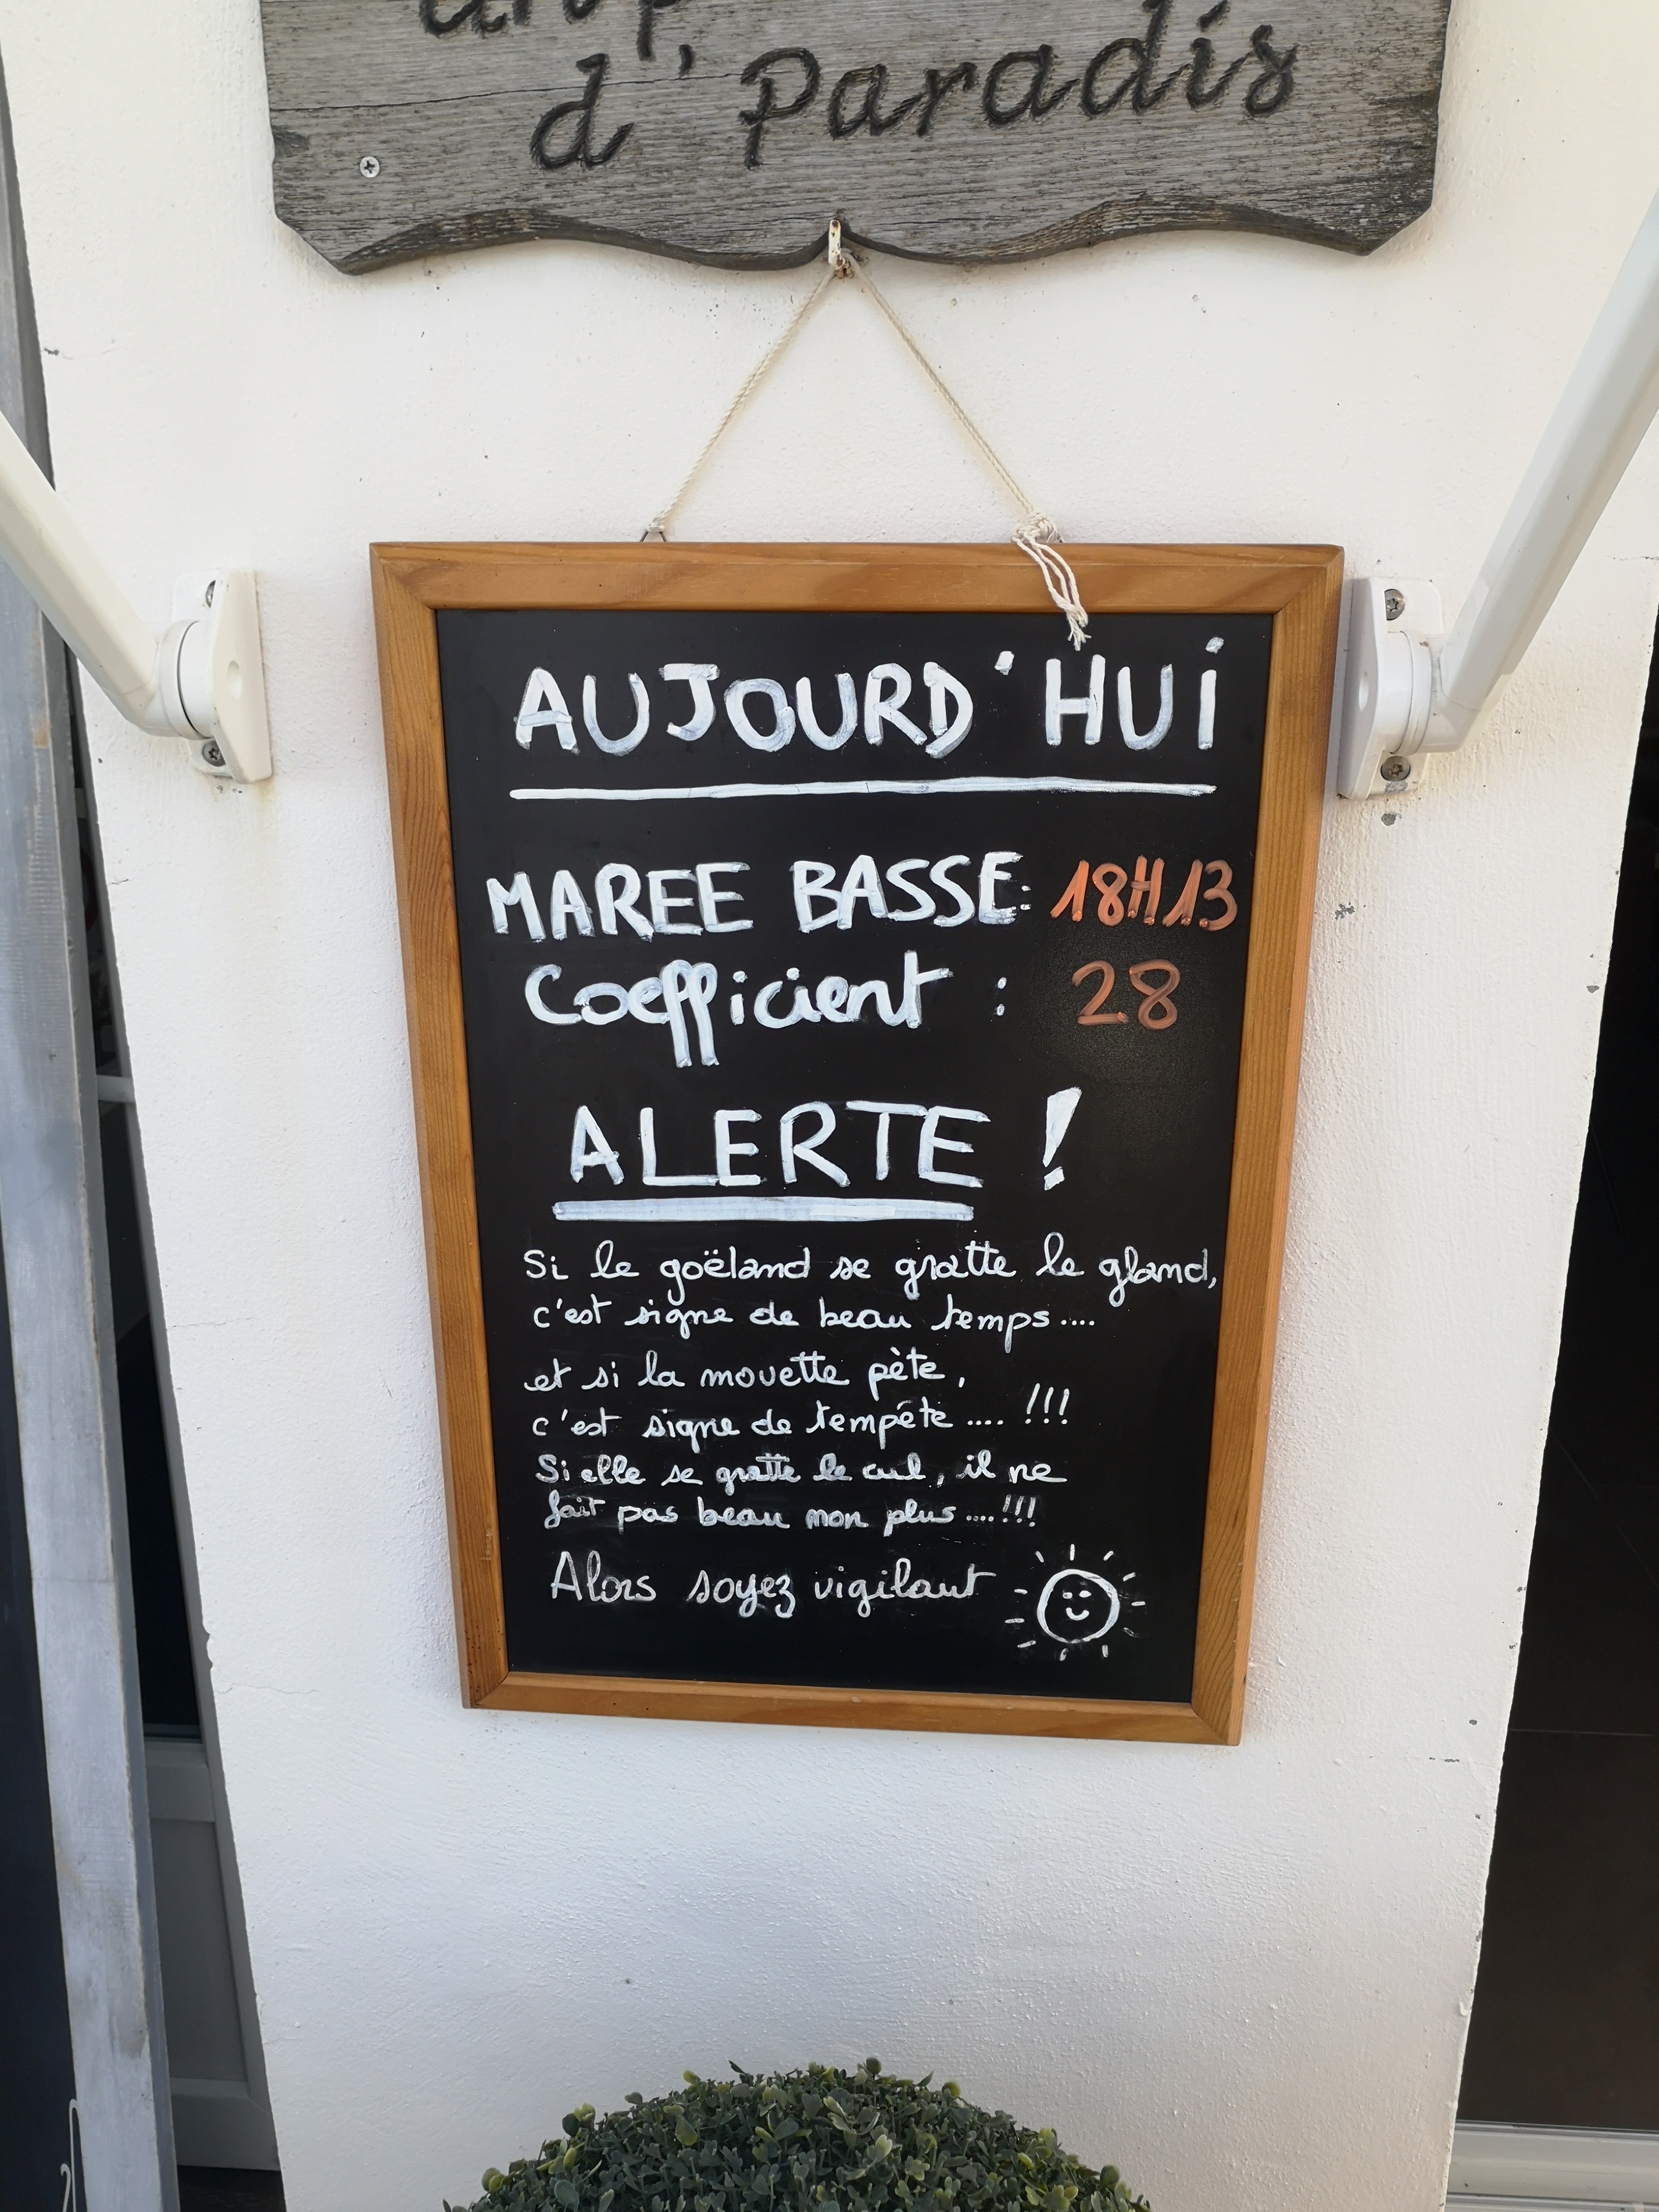 d'Paradis
AUJOURD'HUi
MAREE BASSE: 18H13
Coefficient : 28
ALERTE !
Si le goëland se gratte le gland,
c'est signe de beau temps....
et si la mouette pète,
c'est signe de tempête .... !!!
Si elle se gratte le cul, il ne
fait pas beau non plus ....!!!
Alors soyez vigilant